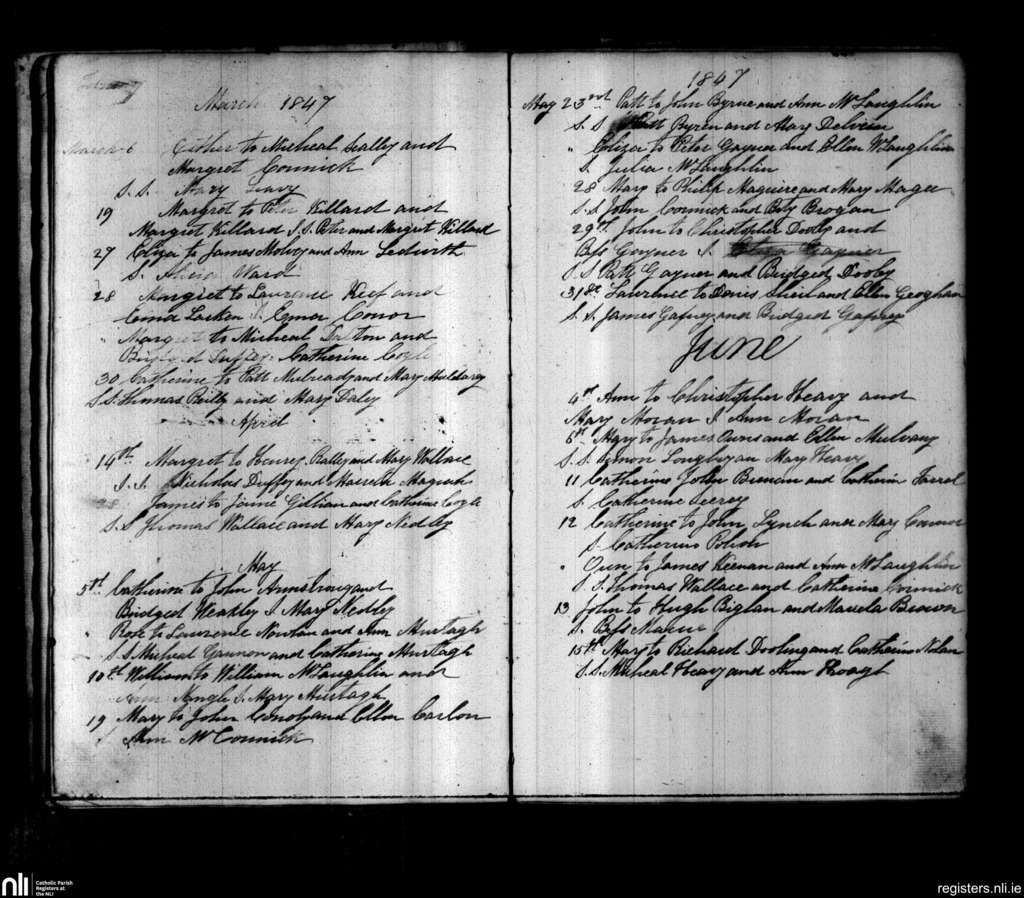 March 1847
March 6 Esther to Micheal Scally and
Margret Cormick
S. S. Mary Leavy
19 Margrot to Peter Killard and
Margrot Killard S. S. Peter and Margret Killard
27 Eliza to James Molvoy and Ann Ledwith
S. Alicia Ward
28 Margret to Laurence Keef and
Larken S. Conor
" Margret to Micheal Dalton and
Bridged Duffey. Catherine Coyle
30 Catherine to Patt Mulready and Mary
S S. Thomas Reilly and Mary Daley
April
14th Margrot to Henrey Ralley and Mary Wallace
S. S. Nicholas Duffey and
28 James to Gillian and Catherine Coyle
S. S Thomas Wallace and Mary Nedley
May
5th Catherine to John Armstrong and
Bridged Weakley S Mary Nedley
" Rose to Laurence Newman and Ann Murtagh
S. S Micheal Gannon and Catherine Murtagh
10th William to William McLaughlin and
Ann Nangle S. Mary Murtagh
19 Mary to John and Ellen Carlon
S Ann McCormick
1847
May 23rd Patt to John Byrne and Ann McLaughlin
S. S Patt Byren and Mary
" Eoliza to Peter Gayner and Ellen McLaughlin
S. Julia McLaughlin
28 Mary to Philip Maguire and Mary Magee
S. S John Cormick and Bety Brogan
29th John to Christopher Dooby and
Bess Gayner S. Gayner
S S Patt Gayner and Bridged Dooby
31st Laurence to Denis Sheil and Ellen Geoghan
S. S. James Gafney and Bridged Gafney
June
4th Ann to Christopher Heavy and
Mary Moran S Ann Moran
6th Mary to James and Ellen Mulvany
S. S. Simon Mary Heavy
11 Catherine John and Catherin Farrel
S. Catherine Seerey
12 Catherine to John Lynch and Mary Connor
S. Catherine
" Oun to James Keenan and Ann McLaughlin
S. S. Thomas Wallace and Catherine Cormick
13 John to Hugh Biglan and Brown
S. Bess
15th Mary to Richard Dooling and Catherine Nolan
S. S. Micheal Heavy and Ann
nli
Catholic Parish
Registers at
the NLI
registers.nli.ie